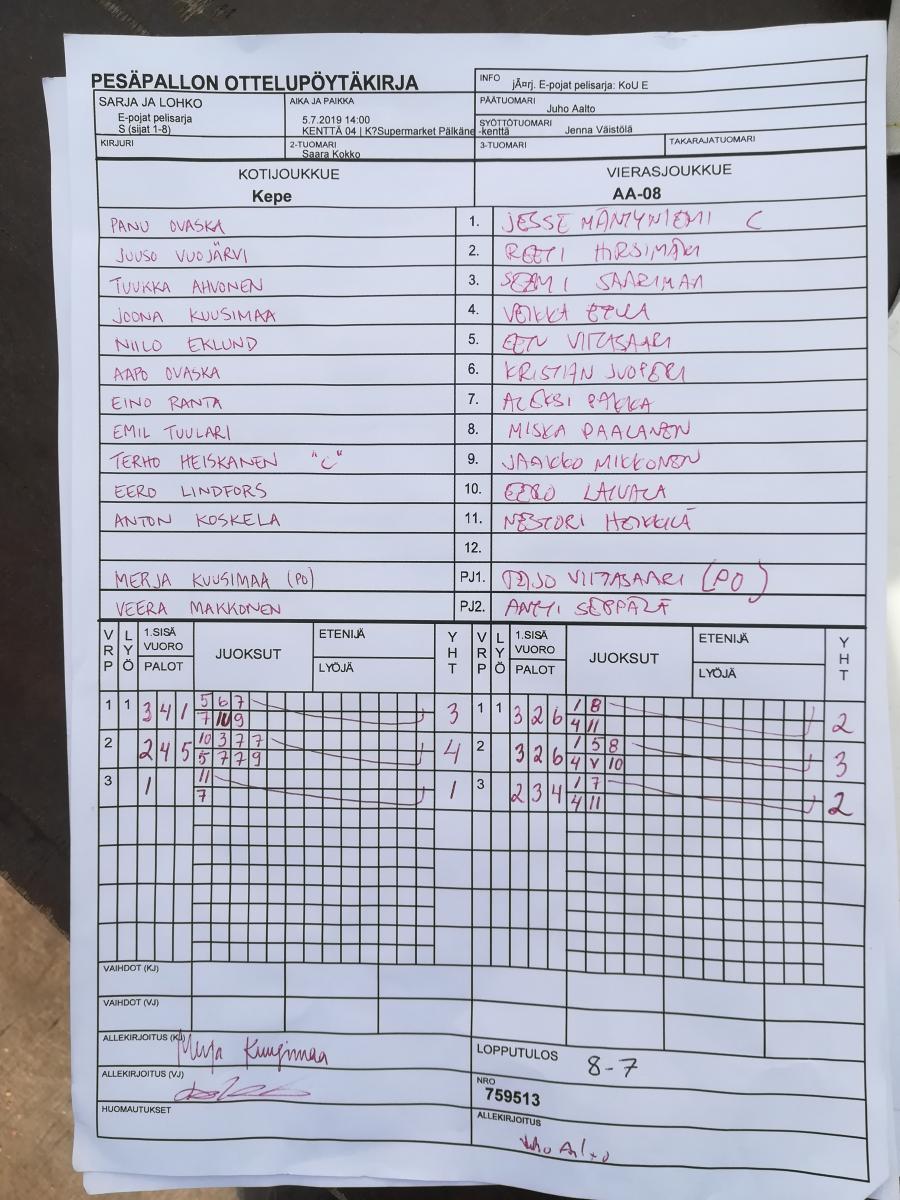 PESÄPALLON OTTELUPÖYTÄKIRJA
INFO jÃ¤rj. E-pojat pelisarja: KoU E
SARJA JA LOHKO
E-pojat pelisarja
S (sijat 1-8)
AIKA JA PAIKKA
5.7.2019 14:00
KENTTÄ 04 | K?Supermarket Pälkäne -kenttä
PÄÄTUOMARI
Juho Aalto
SYÖTTÖTUOMARI
Jenna Väistölä
KIRJURI
2-TUOMARI
Saara Kokko
3-TUOMARI
TAKARAJATUOMARI
KOTIJOUKKUE
Kepe
VIERASJOUKKUE
AA-08
PANU OVASKA 1. JESSE MÄNTYNIEMI C
JUUSO VUOJÄRVI 2. REETI HIRSIMÄKI
TUUKKA AHVONEN 3. SEEMI SAARIMAA
JOONA KUUSIMAA 4. VEIKKA
NIILO EKLUND 5. EETU VIITASAARI
AAPO OVASKA 6. KRISTIAN
EINO RANTA 7. ALEKSI PAKKA
EMIL TUULARI 8. MISKA PAALANEN
TERHO HEISKANEN "C" 9. JAAKKO MIKKONEN
EERO LINDFORS 10. EERO LAIVALA
ANTON KOSKELA 11. NESTORI HEIKKILÄ
12.
MERJA KUUSIMAA (PO) PJ1. VIITASAARI (PO)
VEERA MAKKONEN PJ2. ANTTI SEPPÄLÄ
VRP LYÖ 1.SISÄ VUORO PALOT JUOKSUT ETENIJÄ LYÖJÄ YHT VRP LYÖ 1.SISÄ VUORO PALOT JUOKSUT ETENIJÄ LYÖJÄ YHT
1 1 3 4 1 5 6 7 3 1 1 3 2 6 1 8 2
7 10 9 4 11
2 2 4 5 10 3 7 7 4 2 3 2 6 1 5 8 3
5 7 7 9 4 V 10
3 1 11 1 3 2 3 4 1 7 2
7 4 11
VAIHDOT (KJ)
VAIHDOT (VJ)
ALLEKIRJOITUS (KJ) Merja Kuusimaa
LOPPUTULOS 8-7
ALLEKIRJOITUS (VJ)
NRO
759513
HUOMAUTUKSET
ALLEKIRJOITUS
Juho Aalto